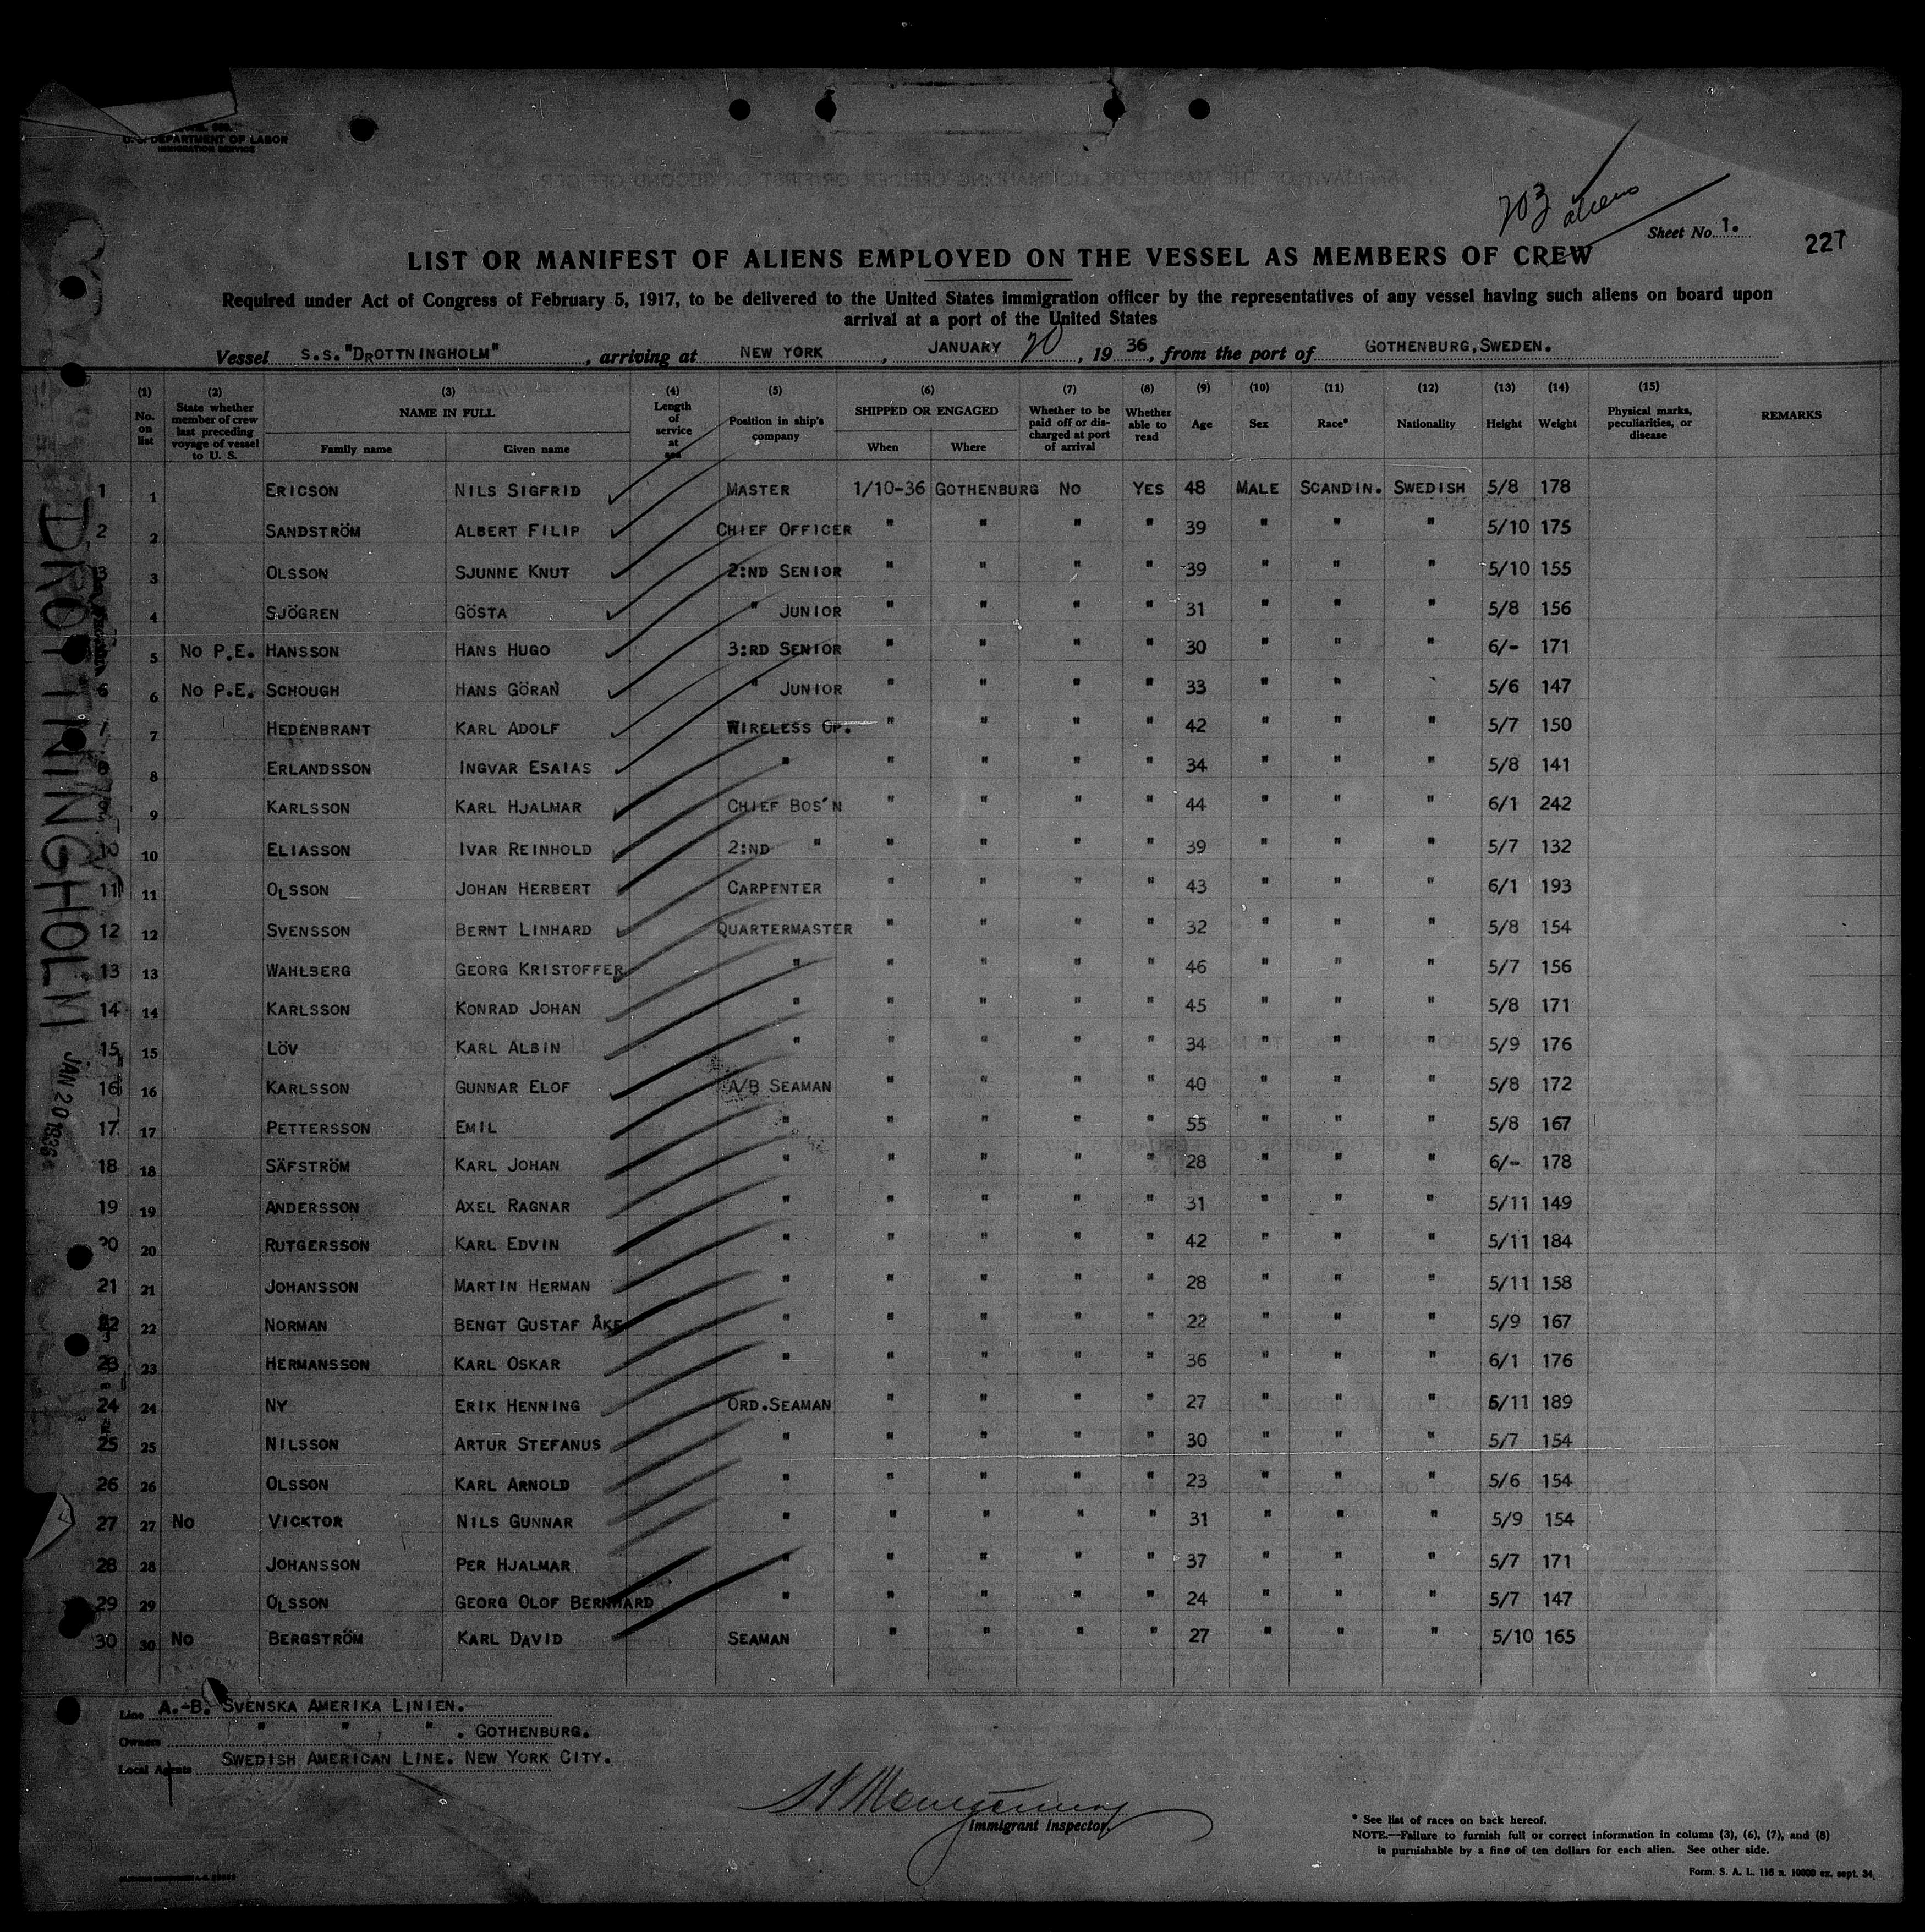 U. S. DEPARTMENT OF LABOR
IMMIGRATION SERVICE
203 aliens
Sheet No. 1.
227
LIST OR MANIFEST OF ALIENS EMPLOYED ON THE VESSEL AS MEMBERS OF CREW
Required under Act of Congress of February 5, 1917, to be delivered to the United States immigration officer by the representatives of any vessel having such aliens on board upon
arrival at a port of the United States
Vessel S.S. "DROTTNINGHOLM", arriving at NEW YORK, JANUARY 20, 1936, from the port of GOTHENBURG, SWEDEN.
(1) No. on list (2) State whether member of crew last preceding voyage of vessel to U. S. (3) NAME IN FULL Family name Given name (4) Length of service at sea (5) Position in ship's company (6) SHIPPED OR ENGAGED When Where (7) Whether to be paid off or discharged at port of arrival (8) Whether able to read (9) Age (10) Sex (11) Race* (12) Nationality (13) Height (14) Weight (15) Physical marks, peculiarities, or disease REMARKS
1 1 ERICSON NILS SIGFRID MASTER 1/10-36 GOTHENBURG NO YES 48 MALE SCANDIN. SWEDISH 5/8 178
2 2 SANDSTRÖM ALBERT FILIP CHIEF OFFICER " " " " 39 " " " 5/10 175
3 3 OLSSON SJUNNE KNUT 2:ND SENIOR " " " " 39 " " " 5/10 155
4 SJÖGREN GÖSTA " JUNIOR " " " " 31 " " " 5/8 156
5 NO P.E. HANSSON HANS HUGO 3:RD SENIOR " " " " 30 " " " 6/- 171
6 6 NO P.E. SCHOUGH HANS GÖRAN " JUNIOR " " " " 33 " " " 5/6 147
7 HEDENBRANT KARL ADOLF WIRELESS OP. " " " " 42 " " " 5/7 150
8 ERLANDSSON INGVAR ESAIAS " " " " " 34 " " " 5/8 141
9 KARLSSON KARL HJALMAR CHIEF BOS'N " " " " 44 " " " 6/1 242
10 ELIASSON IVAR REINHOLD 2:ND " " " " " 39 " " " 5/7 132
11 11 OLSSON JOHAN HERBERT CARPENTER " " " " 43 " " " 6/1 193
12 12 SVENSSON BERNT LINHARD QUARTERMASTER " " " " 32 " " " 5/8 154
13 13 WAHLBERG GEORG KRISTOFFER " " " " " 46 " " " 5/7 156
14 14 KARLSSON KONRAD JOHAN " " " " " 45 " " " 5/8 171
15 15 LÖV KARL ALBIN " " " " " 34 " " " 5/9 176
16 16 KARLSSON GUNNAR ELOF A/B SEAMAN " " " " 40 " " " 5/8 172
17 17 PETTERSSON EMIL " " " " " 55 " " " 5/8 167
18 18 SÄFSTRÖM KARL JOHAN " " " " " 28 " " " 6/- 178
19 19 ANDERSSON AXEL RAGNAR " " " " " 31 " " " 5/11 149
20 20 RUTGERSSON KARL EDVIN " " " " " 42 " " " 5/11 184
21 21 JOHANSSON MARTIN HERMAN " " " " " 28 " " " 5/11 158
22 22 NORMAN BENGT GUSTAF ÅKE " " " " " 22 " " " 5/9 167
23 23 HERMANSSON KARL OSKAR " " " " " 36 " " " 6/1 176
24 24 NY ERIK HENNING ORD.SEAMAN " " " " 27 " " " 5/11 189
25 25 NILSSON ARTUR STEFANUS " " " " " 30 " " " 5/7 154
26 26 OLSSON KARL ARNOLD " " " " " 23 " " " 5/6 154
27 27 NO VICKTOR NILS GUNNAR " " " " " 31 " " " 5/9 154
28 28 JOHANSSON PER HJALMAR " " " " " 37 " " " 5/7 171
29 29 OLSSON GEORG OLOF BERNHARD " " " " " 24 " " " 5/7 147
30 30 NO BERGSTRÖM KARL DAVID SEAMAN " " " " 27 " " " 5/10 165
DROTTNINGHOLM JAN 20 1936
Line A.-B. SVENSKA AMERIKA LINIEN.
Owners " " " . GOTHENBURG.
Local Agents SWEDISH AMERICAN LINE. NEW YORK CITY.
Immigrant Inspector.
* See list of races on back hereof.
NOTE.—Failure to furnish full or correct information in colums (3), (6), (7), and (8)
is purnishable by a fine of ten dollars for each alien. See other side.
Form. S. A. L. 116 n. 10000 ex. sept. 34.